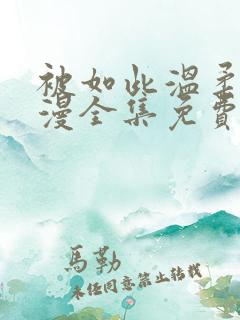 被如此温柔
漫全集免費
馬勒
未经同意禁止转载